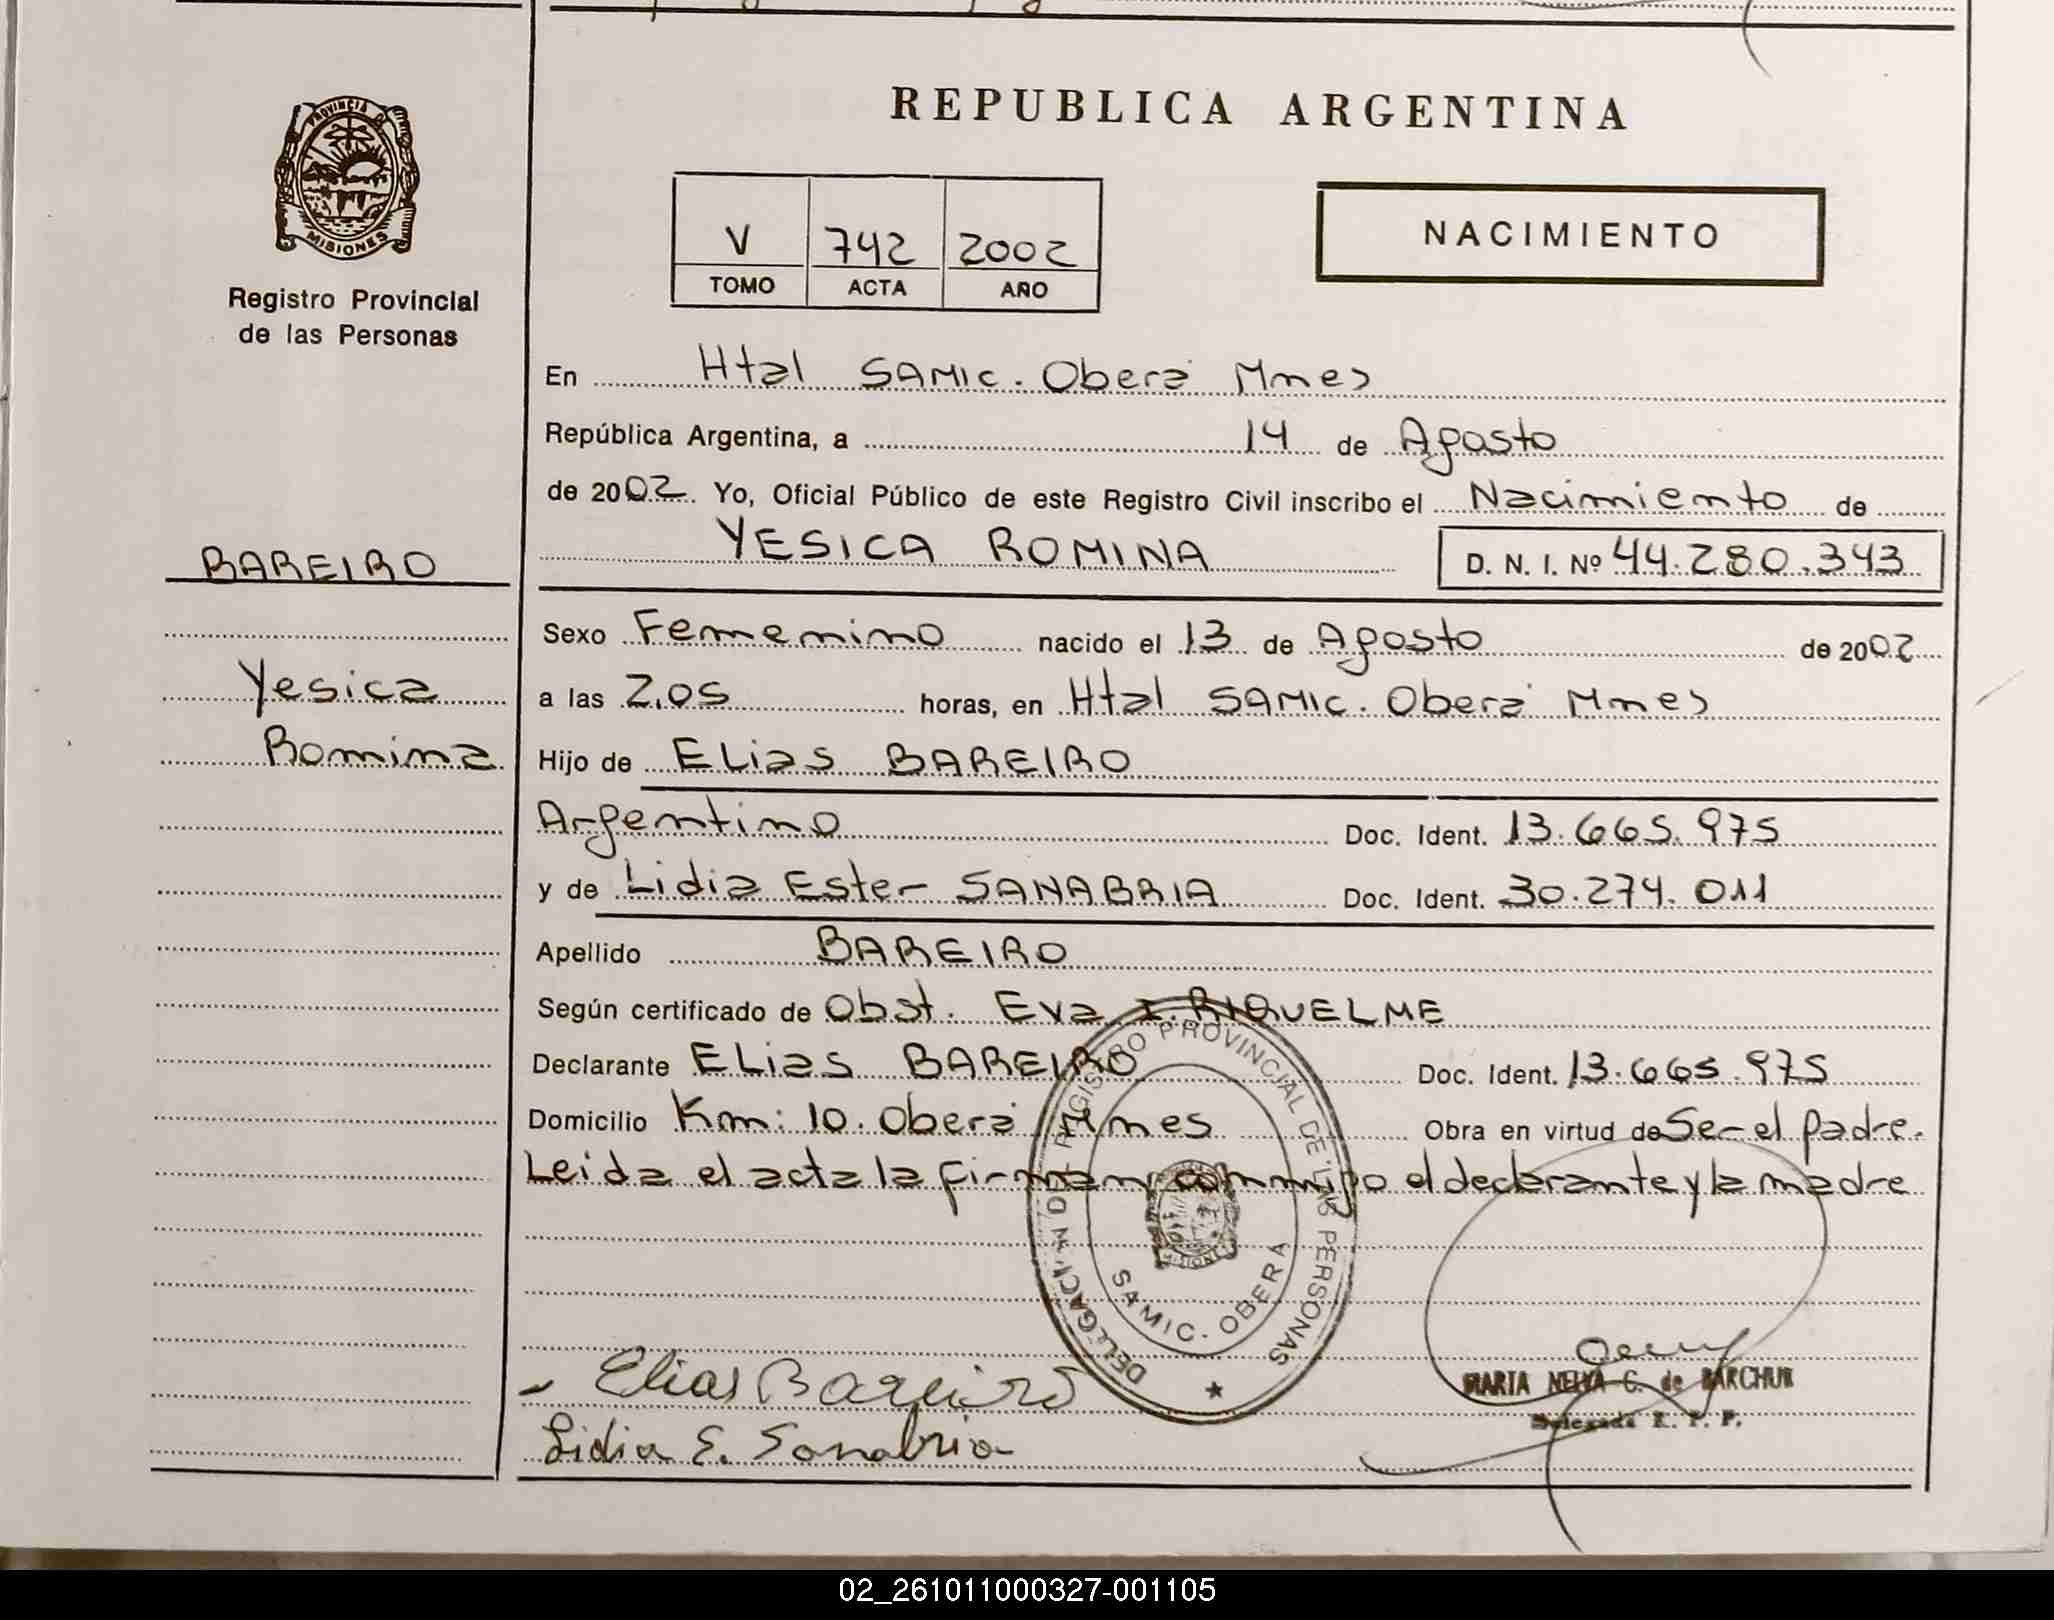 REPUBLICA ARGENTINA
PROVINCIA DE
MISIONES
Registro Provincial
de las Personas
V 742 2002
TOMO ACTA AÑO
NACIMIENTO
En Htal SAMIC. Oberá Mnes
República Argentina, a 14 de Agosto
de 2002. Yo, Oficial Público de este Registro Civil inscribo el Nacimiento de
YESICA ROMINA D. N. I. Nº 44.280.343
BAREIRO
Yesica
Romina
Sexo Femenino nacido el 13 de Agosto de 2002
a las 2,05 horas, en Htal SAMIC. Oberá Mnes
Hijo de ELias BAREIRO
Argentino Doc. Ident. 13.665.975
y de Lidia Ester SANABRIA Doc. Ident. 30.274.011
Apellido BAREIRO
Según certificado de Obst. Eva I. RIQUELME
Declarante ELias BAREIRO Doc. Ident. 13.665.975
Domicilio Km: 10. Oberá Mnes Obra en virtud de Ser el padre.
Leida el acta la firman conmigo el declarante y la madre
REGISTRO PROVINCIAL DE LAS PERSONAS
SAMIC. OBERA
Elias Bareiro
Lidia E. Sanabria
MARTA NELVA C. de BARCHUK
Delegada R. P. P.
02_261011000327-001105